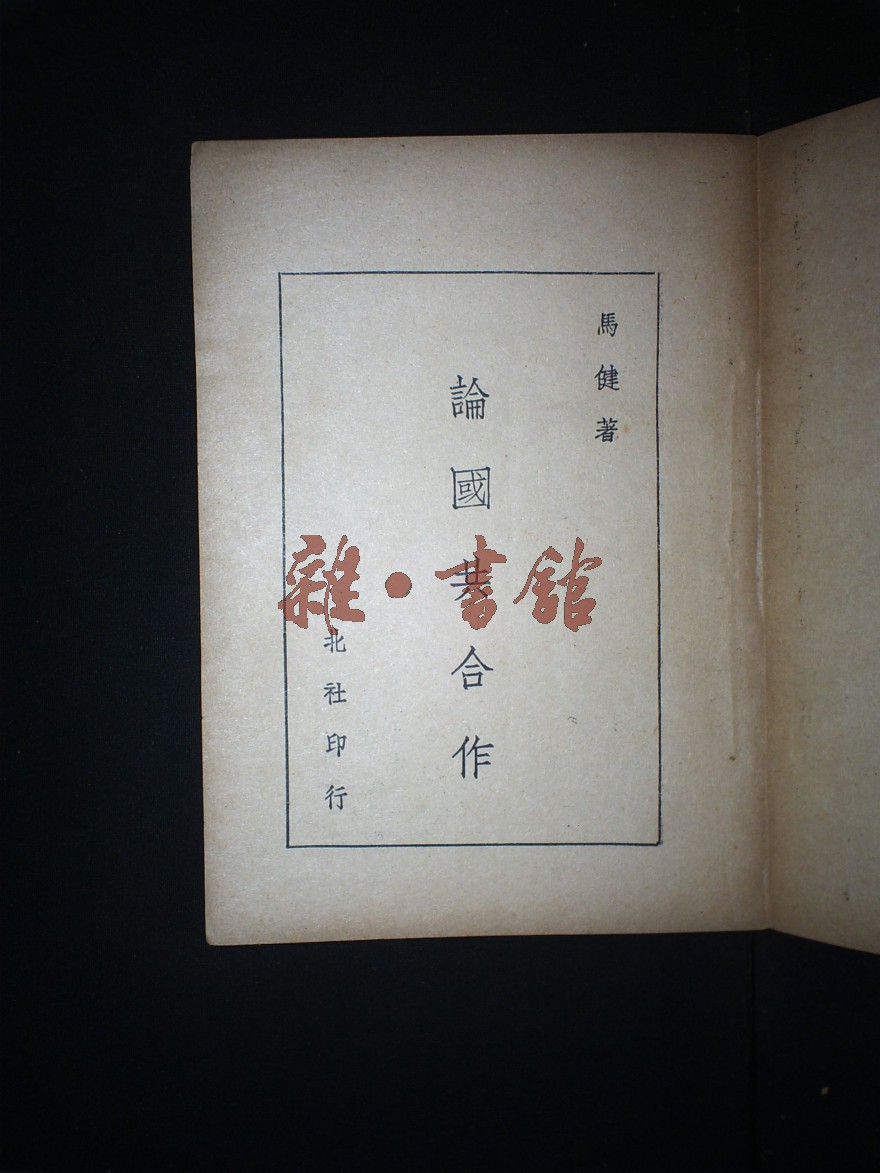 馬健著
論國共合作
北社印行
雜·書館